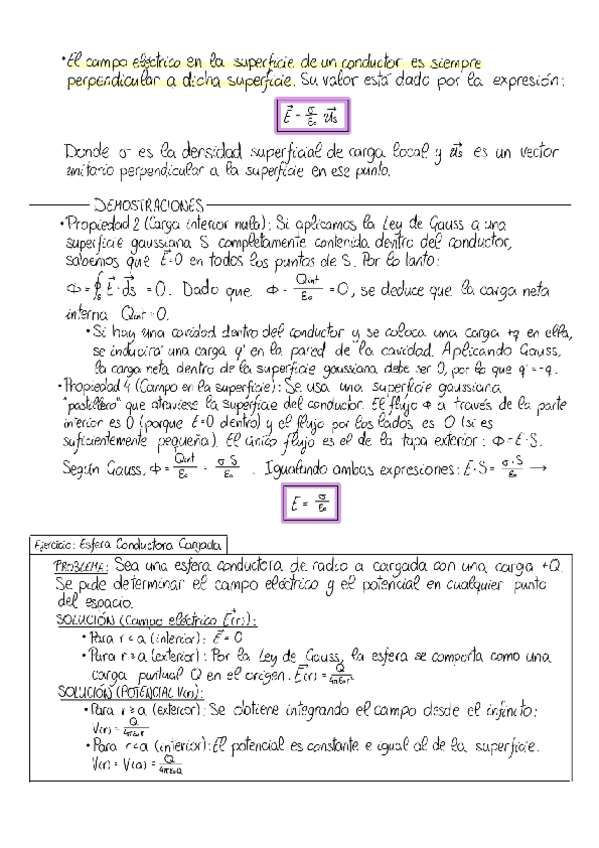 • El campo eléctrico en la superficie de un conductor es siempre
perpendicular a dicha superficie. Su valor está dado por la expresión:
E⃗ = σ/ε₀ u⃗s
Donde σ es la densidad superficial de carga local y u⃗s es un vector
unitario perpendicular a la superficie en ese punto.
DEMOSTRACIONES
• Propiedad 2 (Carga interior nula): Si aplicamos la Ley de Gauss a una
superficie gaussiana S completamente contenida dentro del conductor,
sabemos que E⃗=0 en todos los puntos de S. Por lo tanto:
Φ = ∮s E⃗ · ds⃗ = 0. Dado que Φ = Qint/ε₀ = 0, se deduce que la carga neta
interna Qint = 0.
• Si hay una cavidad dentro del conductor y se coloca una carga +q en ella,
se inducirá una carga q' en la pared de la cavidad. Aplicando Gauss,
la carga neta dentro de la superficie gaussiana debe ser 0, por lo que q' = -q.
• Propiedad 4 (Campo en la superficie): Se usa una superficie gaussiana
"pastillero" que atraviese la superficie del conductor. El flujo Φ a través de la parte
interior es 0 (porque E=0 dentro) y el flujo por los lados es 0 (si es
suficientemente pequeña). El único flujo es el de la tapa exterior: Φ = E · S.
Según Gauss, Φ = Qint/ε₀ = σ S/ε₀ . Igualando ambas expresiones: E · S = σ · S/ε₀ →
E = σ/ε₀
Ejercicio: Esfera Conductora Cargada
PROBLEMA: Sea una esfera conductora de radio a cargada con una carga +Q.
Se pide determinar el campo eléctrico y el potencial en cualquier punto
del espacio.
SOLUCIÓN (Campo eléctrico E⃗(r)):
• Para r < a (interior): E⃗ = 0
• Para r > a (exterior): Por la Ley de Gauss, la esfera se comporta como una
carga puntual Q en el origen. E⃗(r) = Q/4πε₀r²
SOLUCIÓN (POTENCIAL V(r)):
• Para r ≥ a (exterior): Se obtiene integrando el campo desde el infinito:
V(r) = Q/4πε₀r
• Para r < a (interior): El potencial es constante e igual al de la superficie.
V(r) = V(a) = Q/4πε₀a